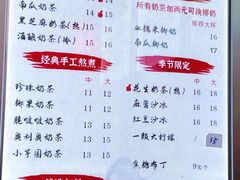 南瓜奶茶 14 15
黑芝麻奶茶(热) 13 15
酒酿奶茶(冷) 14 16
经典手工熬煮
中 大
珍珠奶茶 11 12
椰果奶茶 11 12
脆啵啵奶茶 13 15
奥利奥奶茶 13 15
小芋圆奶茶 13 16
所有奶茶加两元可换椰奶
推荐大杯
血糯米椰奶 16
南瓜椰奶 16
季节限定
中 大
花生奶茶(热) 14 16
麻酱沙冰 16 18
红豆沙冰 16 18
一颗大柠檬 15
焦糖布丁 9元/个